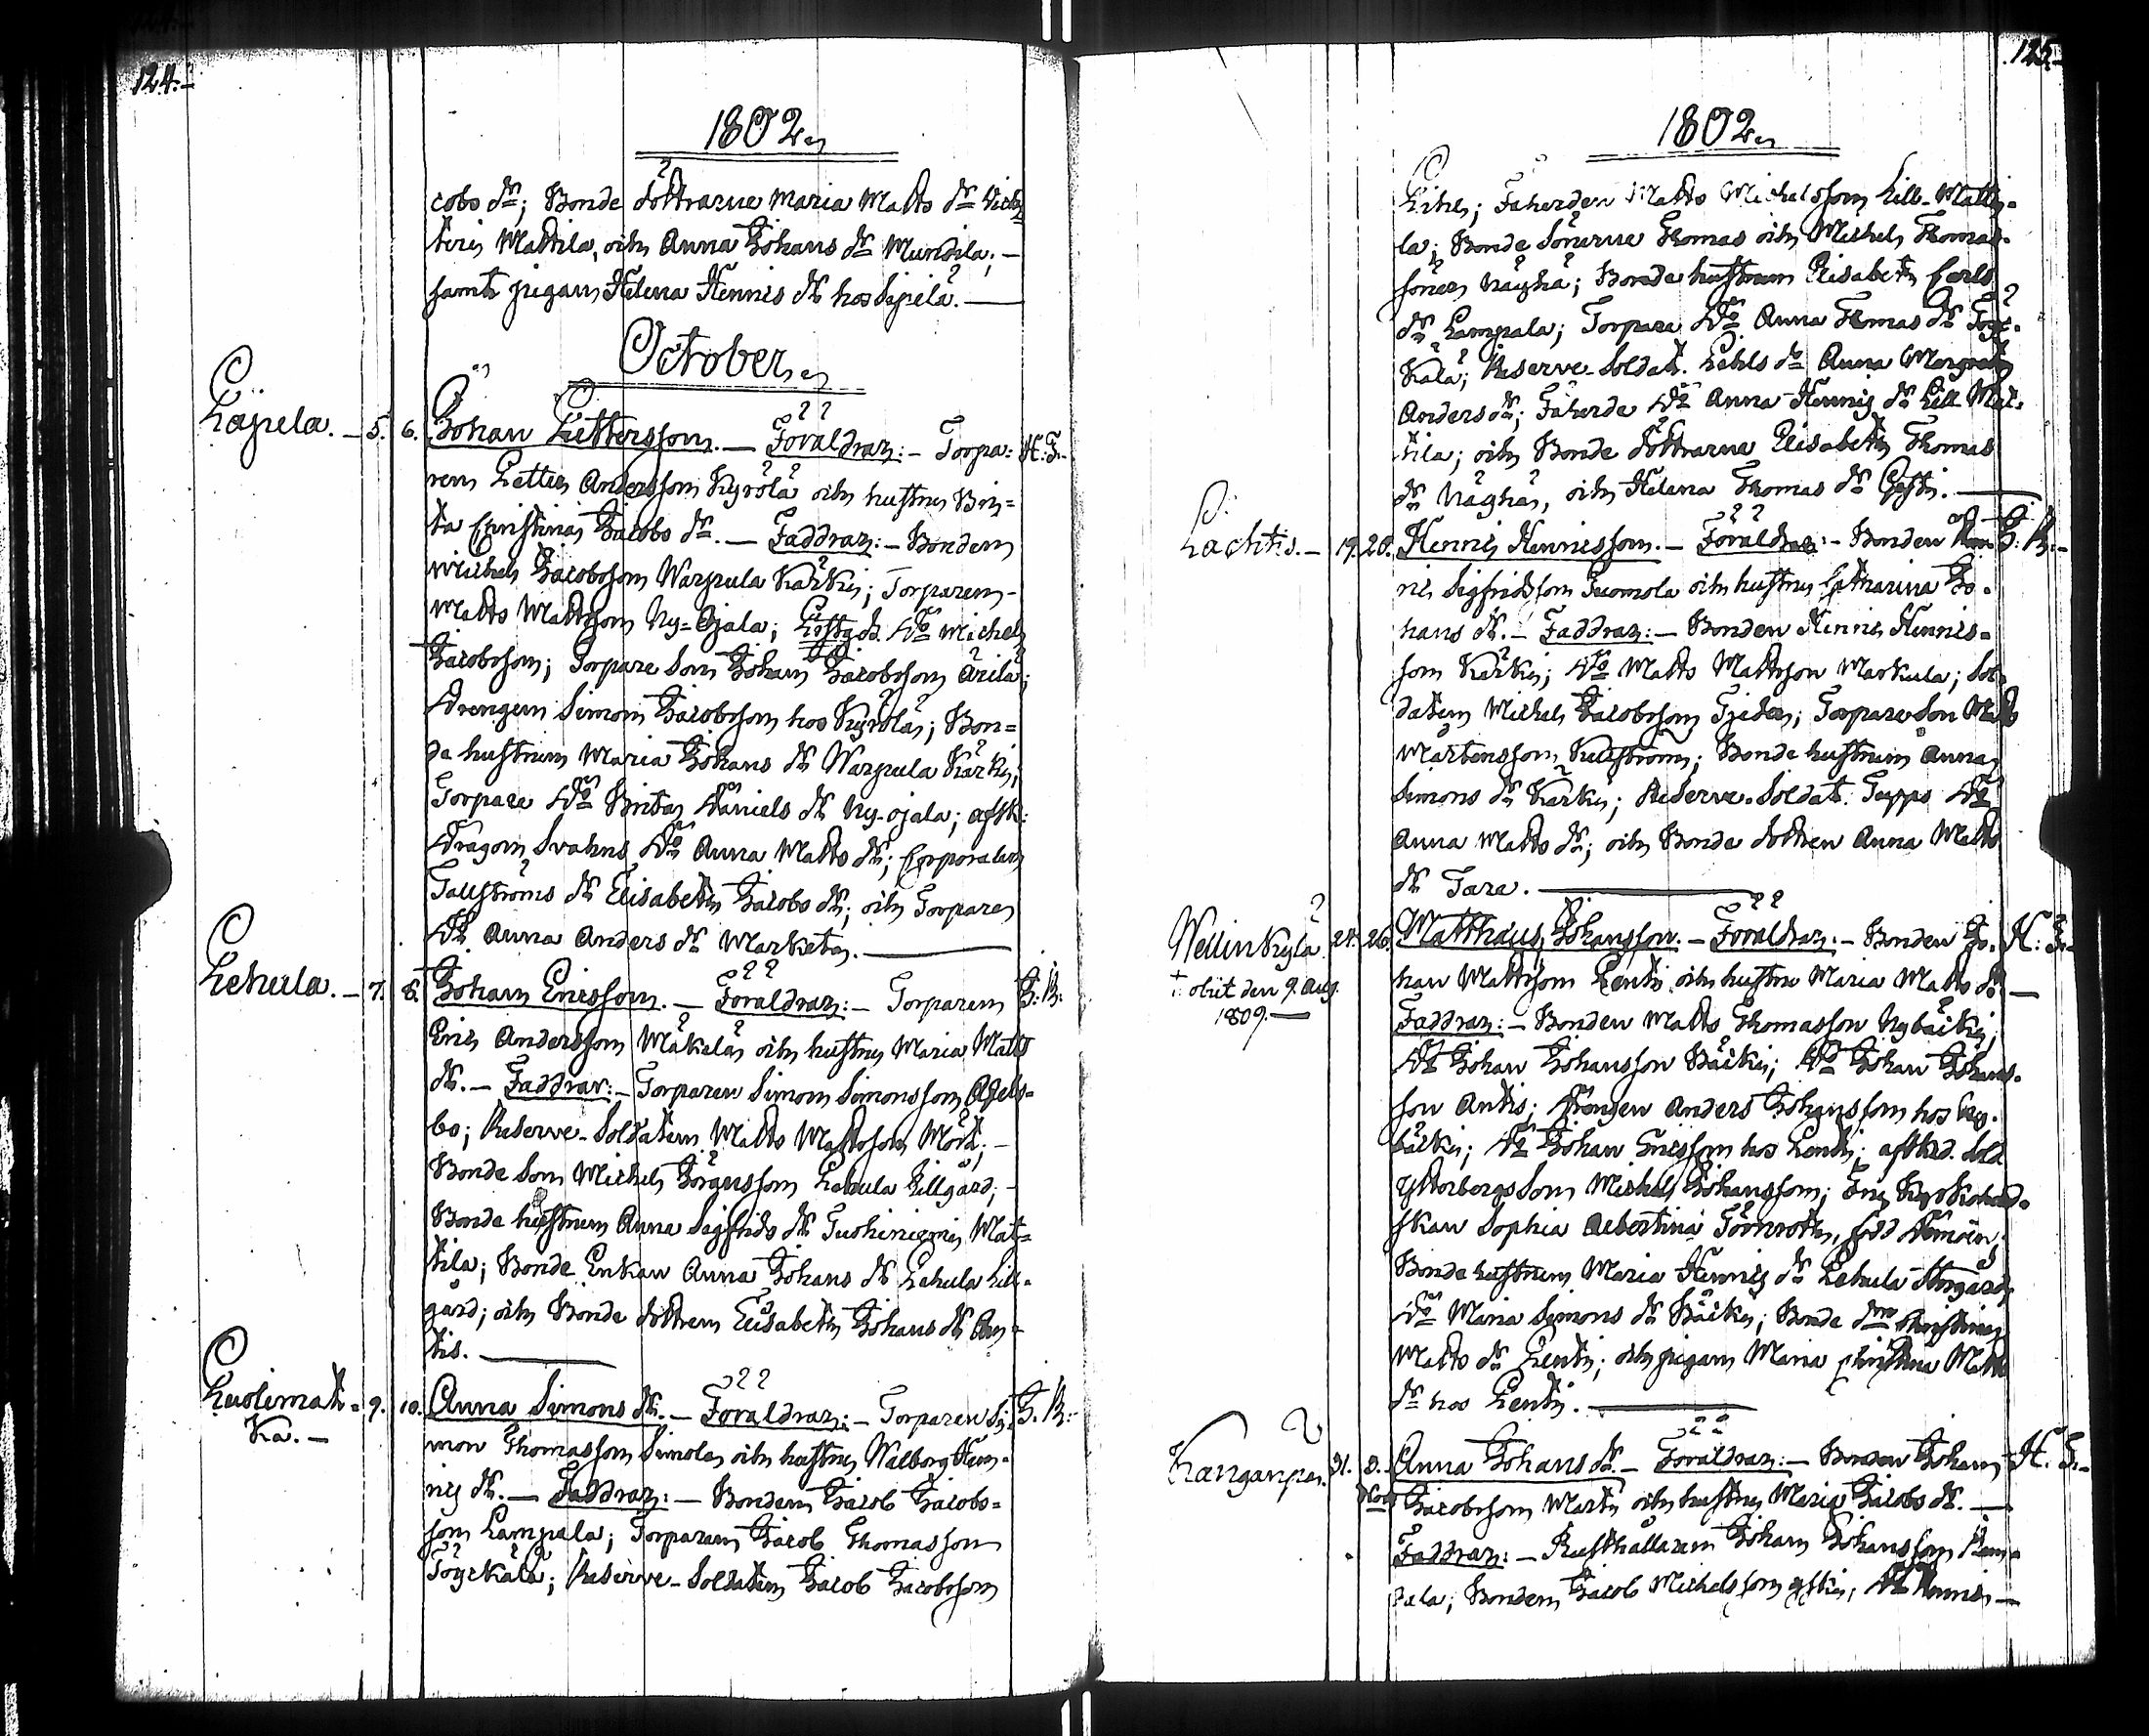 124.
1802
cobs dr; Bonde döttrarne Maria Matts dr
Mattila, och Anna Johans dr Mundila;
samt pigan Helena Hennis dr hos Sipilä.
October
Läpelä. 5. 6. Johan Pettersson. Föräldrar: Torpa= H. F.
ren Petter Andersson Kyrölä och hustru Bri=
ta Christina Jacobs dr. Faddrar: Bonden
Michel Jacobsson Warpula Kärki; Torparen
Matts Mattsson Ny-Ojala; do Michel
Jacobsson; Torpare Son Johan Jacobsson Arila;
Drengen Simon Jacobsson hos Kyrölä; Bon=
de hustrun Maria Johans dr Warpula Kärki;
Torpare do Brita Daniels dr Ny-ojala; afsk:
Dragon Svahns do Anna Matts dr; Corporalen
Tallströms dr Elisabeth Jacobs dr; och Torpare
do Anna Anders dr Marketa.
Lehula. 7. 8. Johan Ericsson. Föräldrar: Torparen
Eric Andersson Mäkelä och hustru Maria Matts
dr. Faddrar: Torparen Simon Simonsson
bo; Reserve-Soldaten Matts Mattsson Mört;
Bonde Son Michel Lehula Lillgård;
Bonde hustrun Anna Sigfrids dr Tuohiniemi Mat=
tila; Bonde Enkan Anna Johans dr Lehula Lill=
gård; och Bonde dottren Elisabeth Johans dr An=
tis.
Luolimat= 9. 10. Anna Simons dr. Föräldrar: Torparen Si=
ka. mon Thomasson Simola och hustru Walborg Hen=
nis dr. Faddrar: Bonden Jacob Jacobs=
son Lampala; Torparen Jacob Thomasson
Töyrkälä; Reserve-Soldaten Jacob Jacobsson
125.
1802
Matts Michelsson Lill-Matti=
la; Bonde Sönerne Thomas och Michel Thomas=
söner Näghä; Bonde hustrun Elisabeth Carls
dr Lampala; Torpare do Anna Thomas dr Töyr=
kälä; Reserve-Soldat. dr Anna Margreta
Anders dr; do Anna Hennis dr Lill Mat=
tila; och Bonde döttrarne Elisabeth Thomas
dr Nägha, och Helena Thomas dr
Lachtis. 19. 20. Hennis Hennisson. Föräldrar: Bonden Hen=
nis Sigfridsson Tuomola och hustru Catharina Jo=
hans dr. Faddrar: Bonden Hennis Hennis=
son Kärki; do Matts Mattsson Markula; Sol=
daten Michel Jacobsson Torpare Son Matts
Mårtensson Bonde hustrun Anna
Simons dr Kärki; Reserve-Soldat. do
Anna Matts dr; och Bonde dottren Anna Matts
dr Tara.
Wellinkylä 24. 26. Matthæus Johansson. Föräldrar: Bonden Jo= H. F.
† obiit den 9. Aug. 1809. han Mattsson Lenti och hustru Maria Matts dr
Faddrar: Bonden Matts Thomasson Nybäcki;
do Johan Johansson Bäcki; do Johan Johans=
son Antis; Drengen Anders Johansson hos Ny=
bäcki; do Johan Ericsson hos Lenti; afsked. Sold.
Ytterbergs Son Michel Johansson;
Sophia Albertina Törnroth, född
Bonde hustrun Maria Hennis dr Lehula Storgård;
do Maria Simons dr Bäcki; Bonde Christina
Matts dr Lenti; och pigan Maria Christina Matts
dr hos Lenti.
Kanganpää. 31. 3. Nov. Anna Johans dr. Föräldrar: Bonden Johan H. F.
Jacobsson Marti och hustru Maria Jacobs dr.
Faddrar: Rusthållaren Johan Johansson
Bonden Jacob Michelsson do Hennis